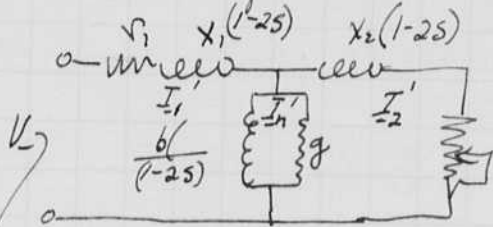 r₁ x₁(1-2S) x₂(1-2S)
I₁' Iₙ' I₂'
b
(1-2S)
g
V